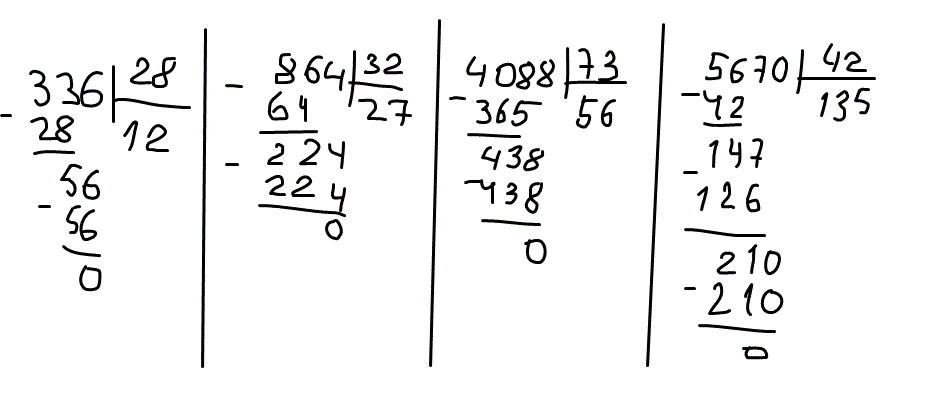 336 28
- 28 12
56
- 56
0
- 864 32
64 27
- 224
224
0
4088 73
- 365 56
438
- 438
0
5670 42
- 42 135
147
- 126
210
- 210
0